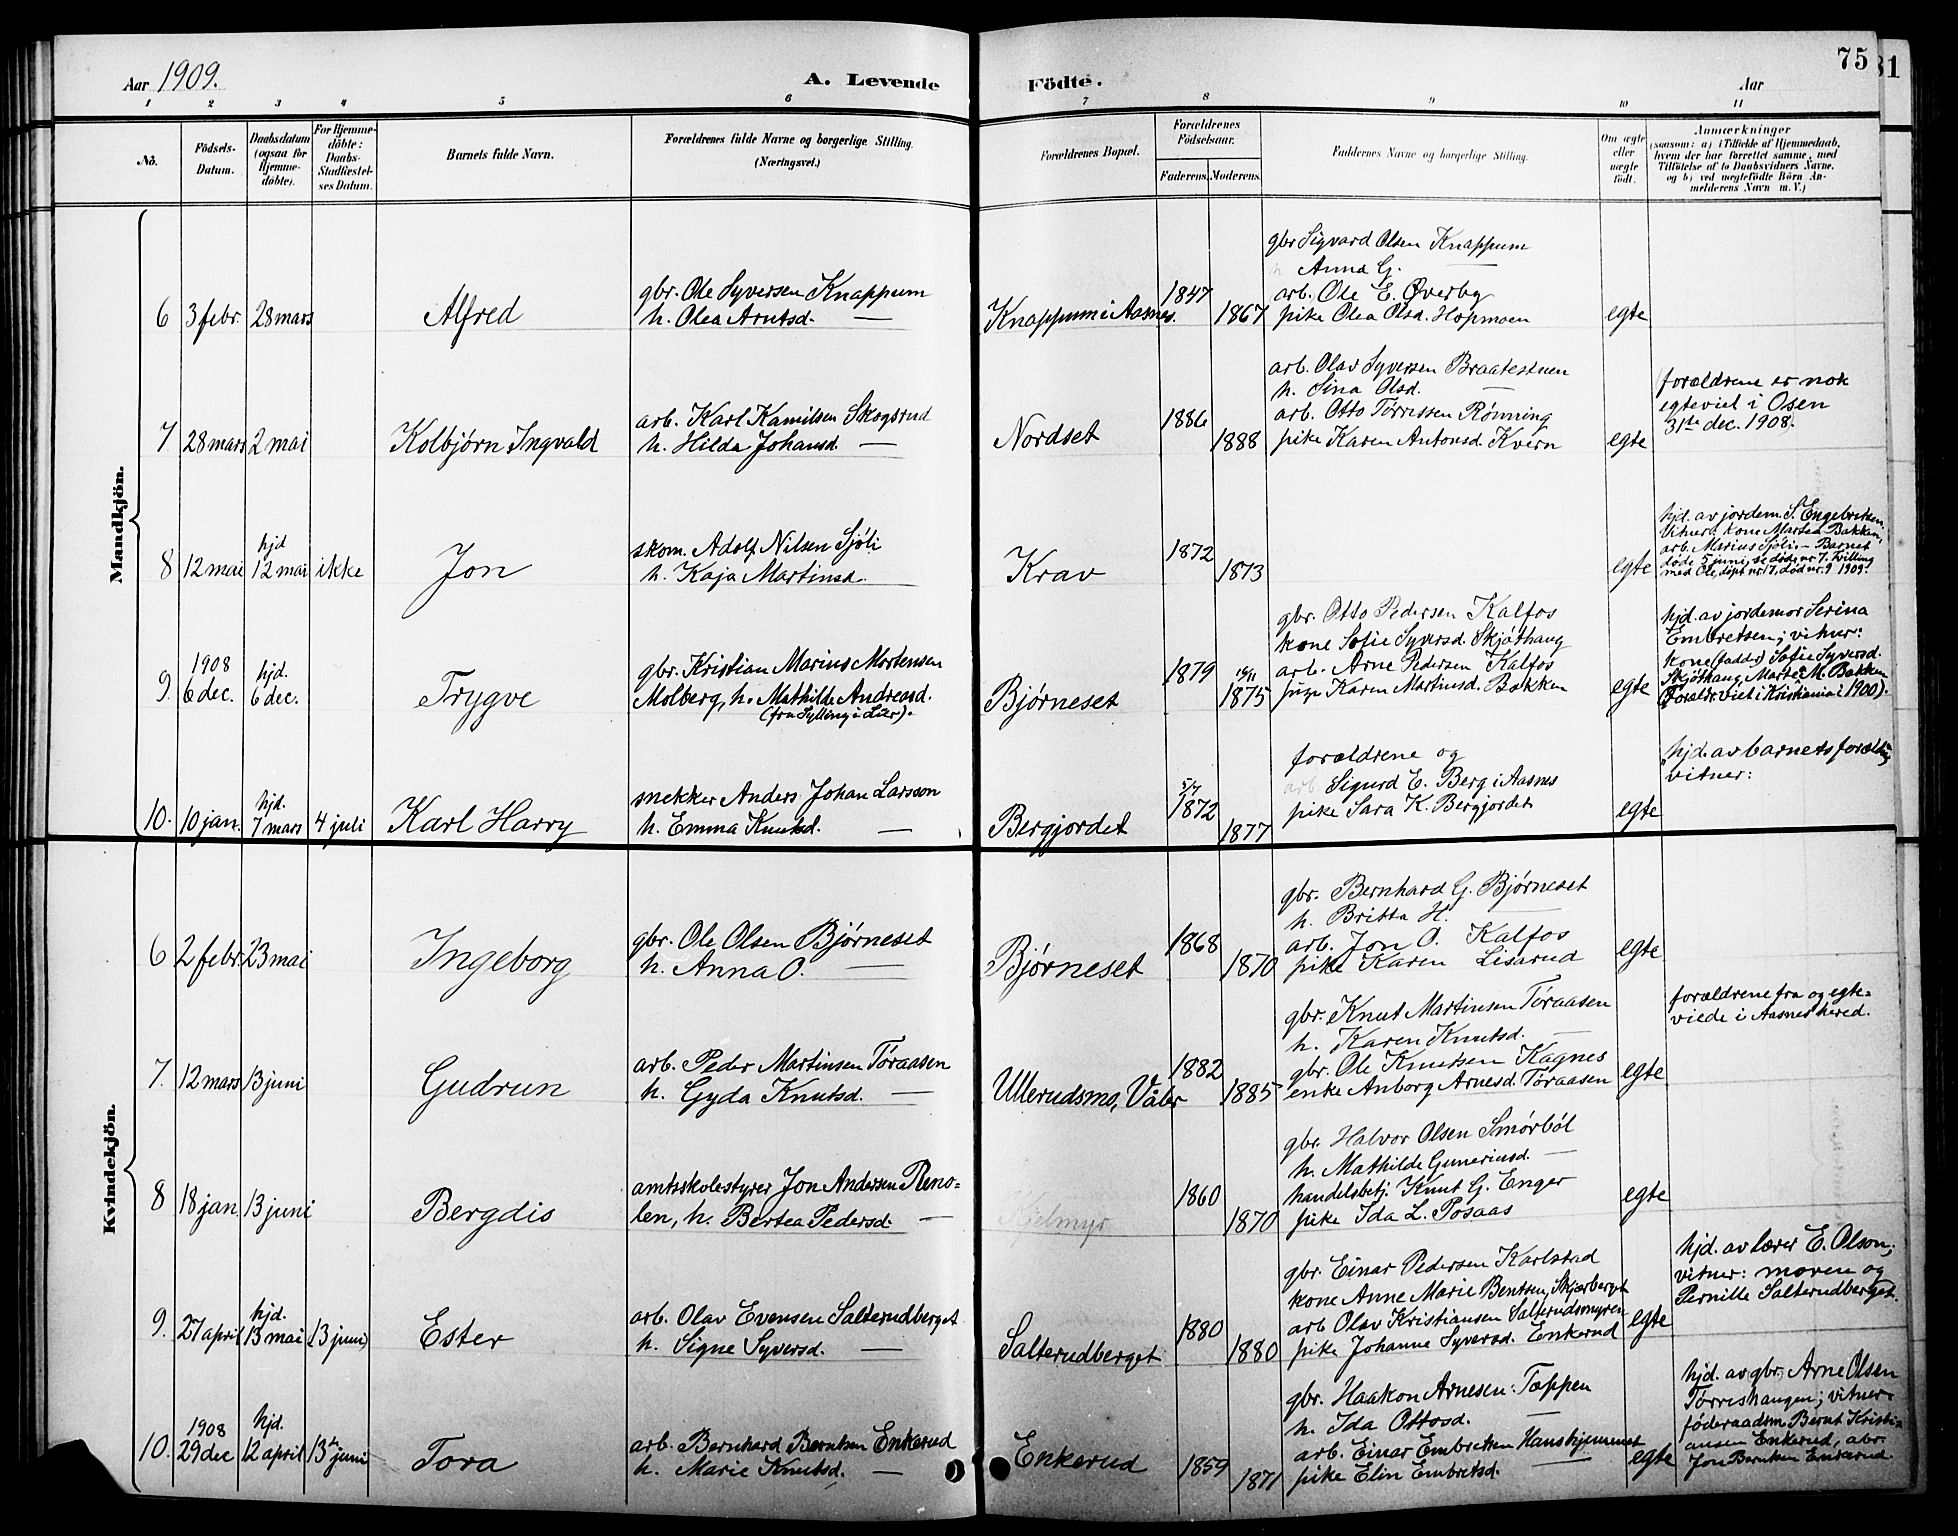 Aar 1909.
A. Levende
Födte.
Aar
75
81
1 2 3 4 5 6 7 8 9 10 11
No.
Födsels-
Datum.
Daabsdatum
(ogsaa for
Hjemme-
döbte).
For Hjemme-
döbte:
Daabs-
Stadfæstel-
ses Datum.
Barnets fulde Navn.
Forældrenes fulde Navne og borgerlige Stilling.
(Næringsvei.)
Forældrenes Bopæl.
Forældrenes
Födselsaar.
Faderens. Moderens.
Faddernes Navne og borgerlige Stilling.
Om ægte
eller
uægte
födt.
Anmærkninger
(saasom: a) i Tilfælde af Hjemmedaab,
hvem der har forrettet samme, med
Tilföielse af to Daabsvidners Navne.
og b) ved uægtefödte Börn An-
melderens Navn m. V.)
Mandkjön.
6 3 febr. 28 mars
Alfred
gbr. Ole Syversen Knappum
h. Olea Arntsd. —
Knappum i Aasnes.
1847
1867
gbr Sigvard Olsen Knappum
h Anna G. —
arb. Ole E. Øverby
pike Olea Olsd. Hopmoen
egte
7. 28 mars 2 mai
Kolbjørn Ingvald
arb. Karl Kamilsen Skogsrud
h. Hilda Johansd. —
Nordset
1886
1888
arb. Olav Syversen Braatestuen
h. Sina Olsd. —
arb. Otto Tørrissen Rønning
pike Karen Antonsd. Kvern
egte
forældrene er nok
egteviet i Osen
31te dec. 1908.
8 12 mai
hjd
12 mai ikke
Jon
skom. Adolf Nilsen Sjøli
h. Kaja Martinsd.
Krav
1872
1873
egte
hjd. av jordem. S. Engebretsen.
Vitner: kone Martea Bakken,
arb. Marius Sjøli. — Barnet
døde 5 juni, se døde nr. 7. Tvilling
med Ole, døpt nr. 17, død nr. 9 1909.
9.
1908
6 dec.
hjd.
6 dec.
Trygve
gbr. Kristian Marius Mortensen
Molberg, h. Mathilde Andreasd.
(fra Sylling i Lier).
Bjørneset
1879
19/11
1875
gbr. Otto Pedersen Kalfos
kone Sofie Syversd. Skjøthaug
arb. Arne Pedersen Kalfos
pige Karen Martinsd. Bakken
egte
hjd. av jordemor Serina
Embretsen; vitner:
kone (fadder) Sofie Syversd.
Skjøthaug, Marte M. Bakken
(Foreldr. viet i Kristiania i 1900).
10. 10 jan.
hjd.
7 mars 4 juli
Karl Harry
snekker Anders Johan Larsson
h. Emma Knutsd. —
Bergjordet
5/7
1872
1877
forældrene og
arb Sigurd E. Berg i Aasnes
pike Sara K. Bergjordet
egte
hjd. av barnets
vitner:
Kvindekjön.
6 2 febr. 23 mai
Ingeborg
gbr. Ole Olsen Bjørneset
h. Anna O. —
Bjørneset
1868
1870
gbr. Bernhard G. Bjørneset
h. Britta H. —
arb. Jon O. Kalfos
pike Karen Lisarud
egte
7. 12 mars 13 juni
Gudrun
arb. Peder Martinsen Tøraasen
h. Gyda Knutsd. —
Ullerudsmo, Våler
1882
1885
gbr. Knut Martinsen Tøraasen
h. Karen Knutsd. —
gbr. Ole Knutsen Kagnes
enke Anborg Arnesd. Tøraasen
egte
forældrene fra og egte=
viede i Aasnes hered.
8 18 jan. 13 juni
Bergdis
amtsskolestyrer Jon Andersen Reno=
len, h. Bertea Pedersd. —
Kjelmyr
1860
1870
gbr. Halvor Olsen Smørbøl
h. Mathilde Guneriusd. —
handelsbetj. Knut G. Enger
pike Ida L. Posaas
egte
9. 27 april
hjd.
13 mai 13 juni
Ester
arb. Olav Evensen Salterudberget
h. Signe Syversd. —
Salterudberget
1880
1880
gbr. Einar Pedersen Karlstad
kone Anne Marie Bentsen, Skjærberget
arb Olav Kristiansen Salterudsmyren
pike Johanne Syversd. Enkerud
egte
hjd. av lærer E. Olson;
vitner: moren og
Pernille Salterudberget.
10.
1908
29 dec
hjd.
12 april 13 juni
Tora
arb. Bernhard Berntsen Enkerud
h. Marie Knutsd. —
Enkerud
1859
1871
gbr. Haakon Arnesen Tæppen
h. Ida Ottosd. —
arb. Einar Embretsen Hanshjemmet
pike Elin Embretsd. —
egte
hjd. av gbr. Arne Olsen
Tørreshaugen; vitner:
føderaadsm. Bernt Kristi=
ansen Enkerud, abr.
Jon Berntsen Enkerud.